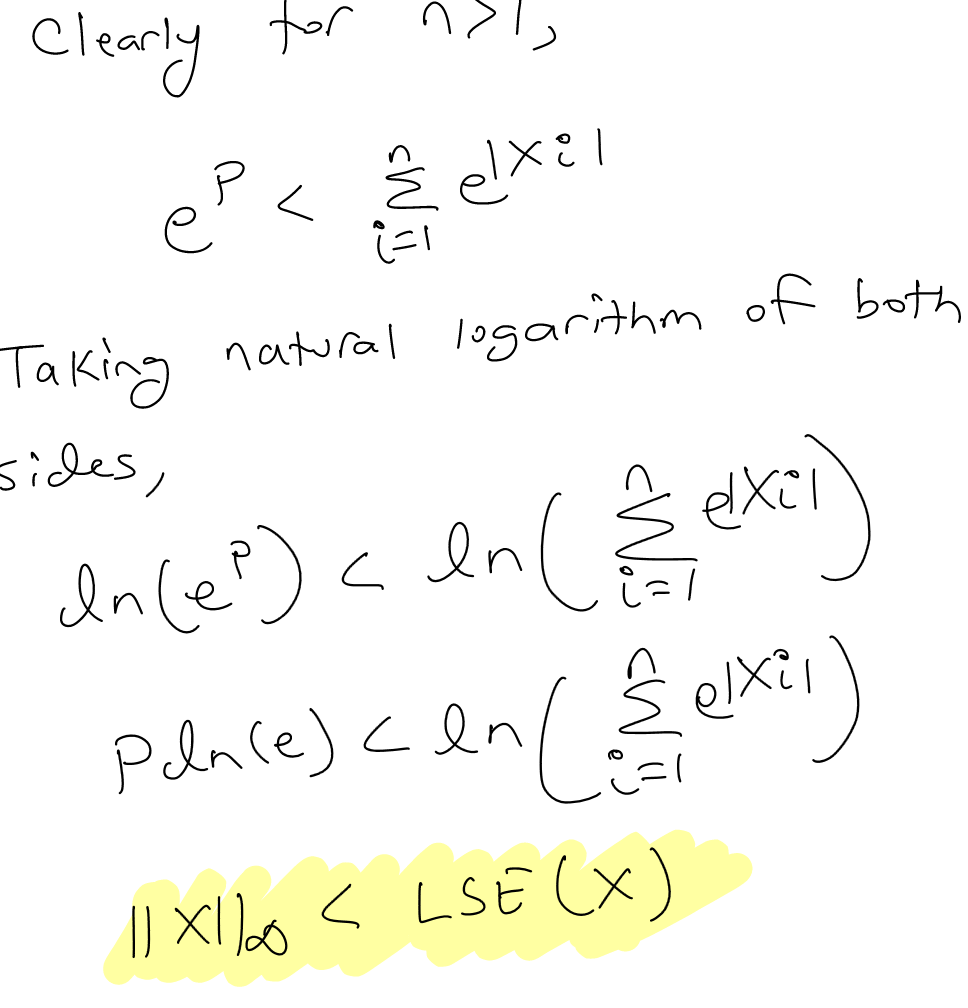 Clearly for n>1,
e^p < Σ_{i=1}^{n} e^{|Xi|}
Taking natural logarithm of both
sides,
ln(e^p) < ln(Σ_{i=1}^{n} e^{|Xi|})
p ln(e) < ln(Σ_{i=1}^{n} e^{|Xi|})
||X||_∞ < LSE(X)